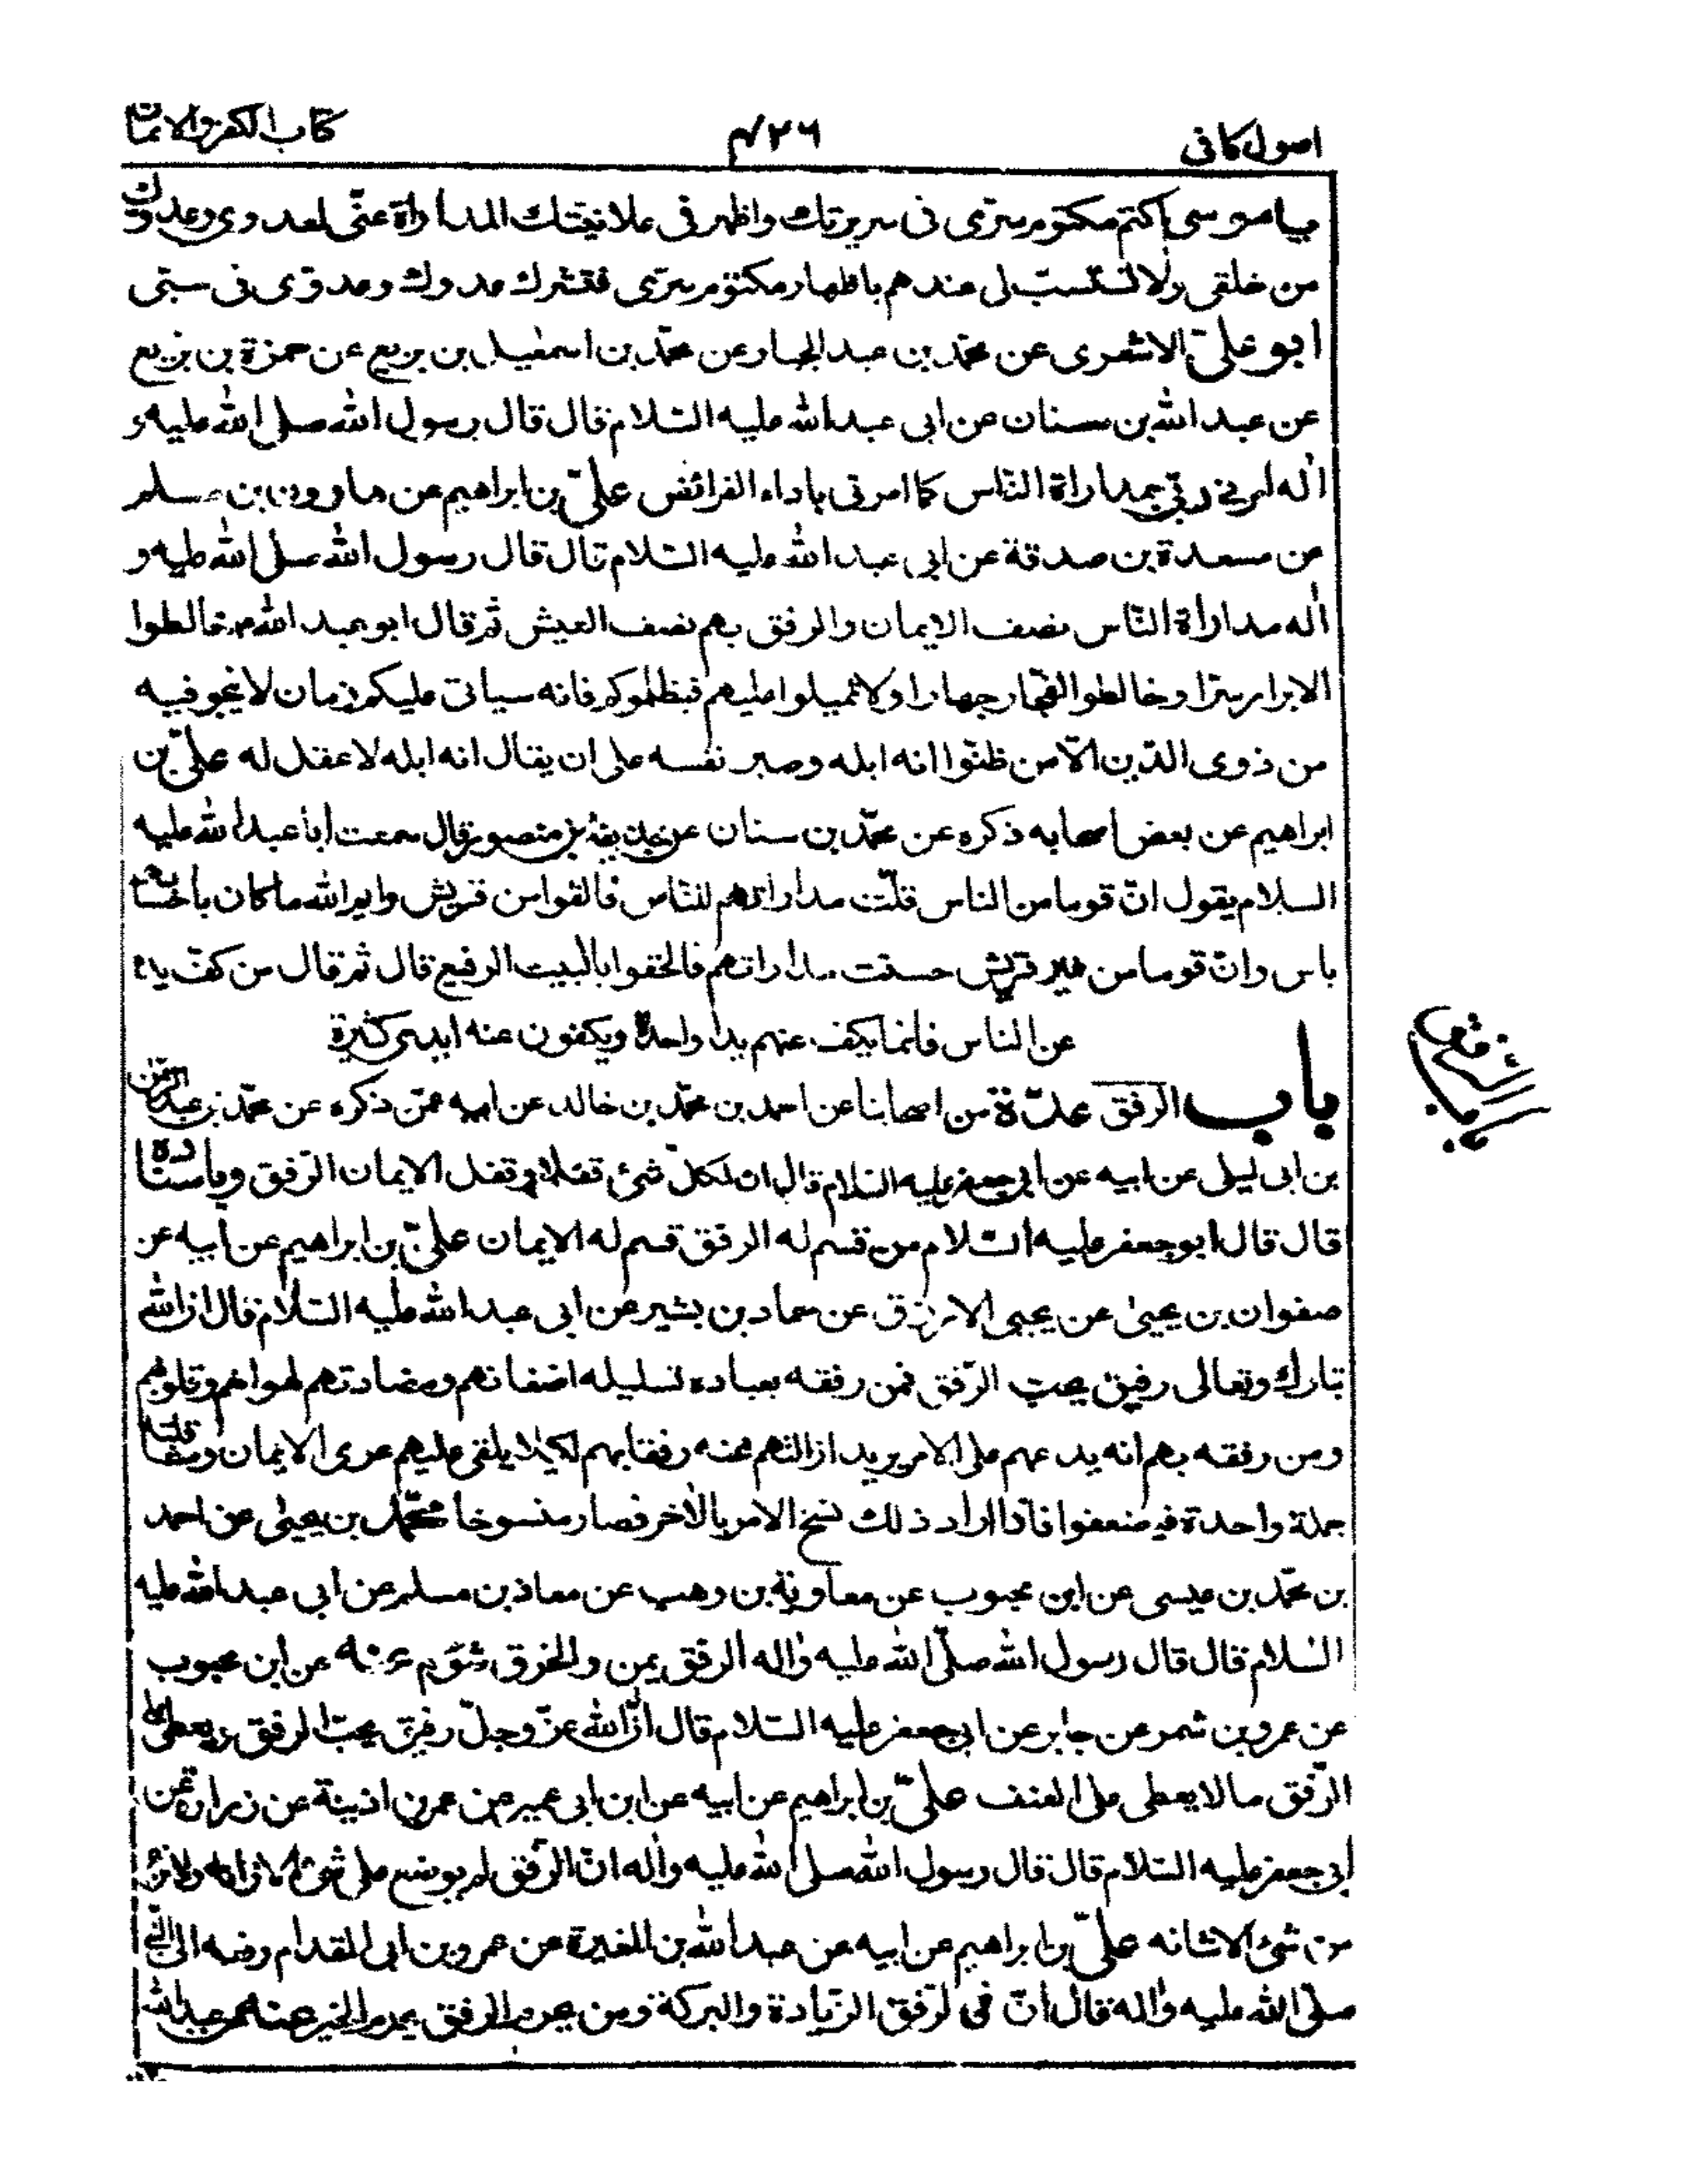 اصول كافى
٤٢٦
كتاب الكفر والايمان
ياموسى اكتم مكتوم سرّى فى سريرتك واظهر فى علانيتك المداراة عنّى لعدوى وعدوك
من خلقى ولا تستسبّ لى عندهم باظهار مكتوم سرّى فتشرك عدوك وعدوّى فى سبّى
ابو علىّ الاشعرى عن محمّد بن عبد الجبار عن محمّد بن اسمعيل بن بزيع عن حمزة بن بزيع
عن عبد الله بن سنان عن ابى عبد الله عليه السّلام قال قال رسول الله صلى الله عليه و
اٰله امرنى ربّى بمداراة النّاس كما امرنى باداء الفرائض علىّ بن ابراهيم عن هارون بن مسلم
عن مسعدة بن صدقة عن ابى عبد الله عليه السّلام قال قال رسول الله صلى الله عليه و
اٰله مداراة النّاس نصف الايمان والرفق بهم نصف العيش ثم قال ابو عبد الله ع خالطوا
الابرار سرّا وخالطوا الفجّار جهارا ولا تميلوا عليهم فيظلموكم فانه سياتى عليكم زمان لا ينجو فيه
من ذوى الدّين الّا من ظنّوا انه ابله وصبر نفسه على ان يقال انه ابله لا عقل له علىّ بن
ابراهيم عن بعض اصحابه ذكره عن محمّد بن سنان عن حذيفة بن منصور قال سمعت ابا عبد الله عليه
السلام يقول انّ قوما من الناس قلّت مداراتهم للنّاس فالقوا من قريش وايم الله ما كان باحسابهم
باس وانّ قوما من غير قريش حسنت مداراتهم فالحقوا بالبيت الرفيع قال ثم قال من كفّ يده
عن الناس فانما يكف عنهم يدا واحدة ويكفون عنه ايدى كثيرة
باب الرفق عدّة من اصحابنا عن احمد بن محمّد بن خالد عن ابيه عمّن ذكره عن محمّد بن عبد الرحمن
بن ابى ليلى عن ابيه عن ابى جعفر عليه السّلام قال ان لكلّ شئ قفلا وقفل الايمان الرّفق وباسناده
قال قال ابو جعفر عليه السّلام من قسم له الرفق قسم له الايمان علىّ بن ابراهيم عن ابيه عن
صفوان بن يحيىٰ عن يحيى الازرق عن حماد بن بشير عن ابى عبد الله عليه السّلام قال ان الله
تبارك وتعالى رفيق يحب الرّفق فمن رفقه بعباده تسليله اضغانهم ومضادتهم لهواهم وقلوبهم
ومن رفقه بهم انه يدعهم على الامر يريد ازالتهم عنه رفقا بهم لكيلا يلقى عليهم عرى الايمان ومثاقلته
جملة واحدة فيضعفوا فاذا اراد ذلك نسخ الامر بالاٰخر فصار منسوخا محمّد بن يحيىٰ عن احمد
بن محمّد بن عيسى عن ابن محبوب عن معاوية بن وهب عن معاذ بن مسلم عن ابى عبد الله عليه
السّلام قال قال رسول الله صلّى الله عليه واٰله الرفق يمن والخرق شؤم عنه عن ابن محبوب
عن عمرو بن شمر عن جابر عن ابى جعفر عليه السّلام قال انّ الله عزّ وجلّ رفيق يحبّ الرفق ويعطى على
الرّفق ما لا يعطى على العنف علىّ بن ابراهيم عن ابيه عن ابن ابى عمير عن عمر بن اذينة عن زرارة عن
ابى جعفر عليه السّلام قال قال رسول الله صلى الله عليه واٰله انّ الرّفق لم يوضع على شئ الا زانه ولا نزع
من شئ الا شانه علىّ بن ابراهيم عن ابيه عن عبد الله بن المغيرة عن عمرو بن ابى المقدام رفعه الى النّبى
صلّى الله عليه واٰله قال انّ فى الرّفق الزّيادة والبركة ومن يحرم الرفق يحرم الخير عنه عن عبد الله